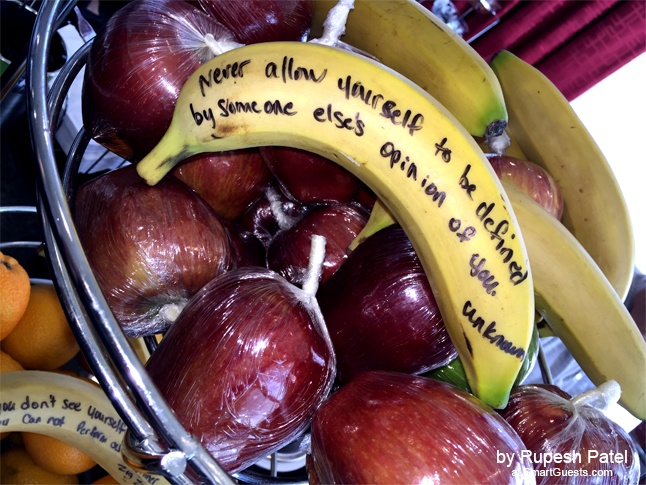 Never allow yourself to be defined
by someone else's opinion of you.
unknown
you don't see yourself
you can not perform
by Rupesh Patel
at SmartGuests.com